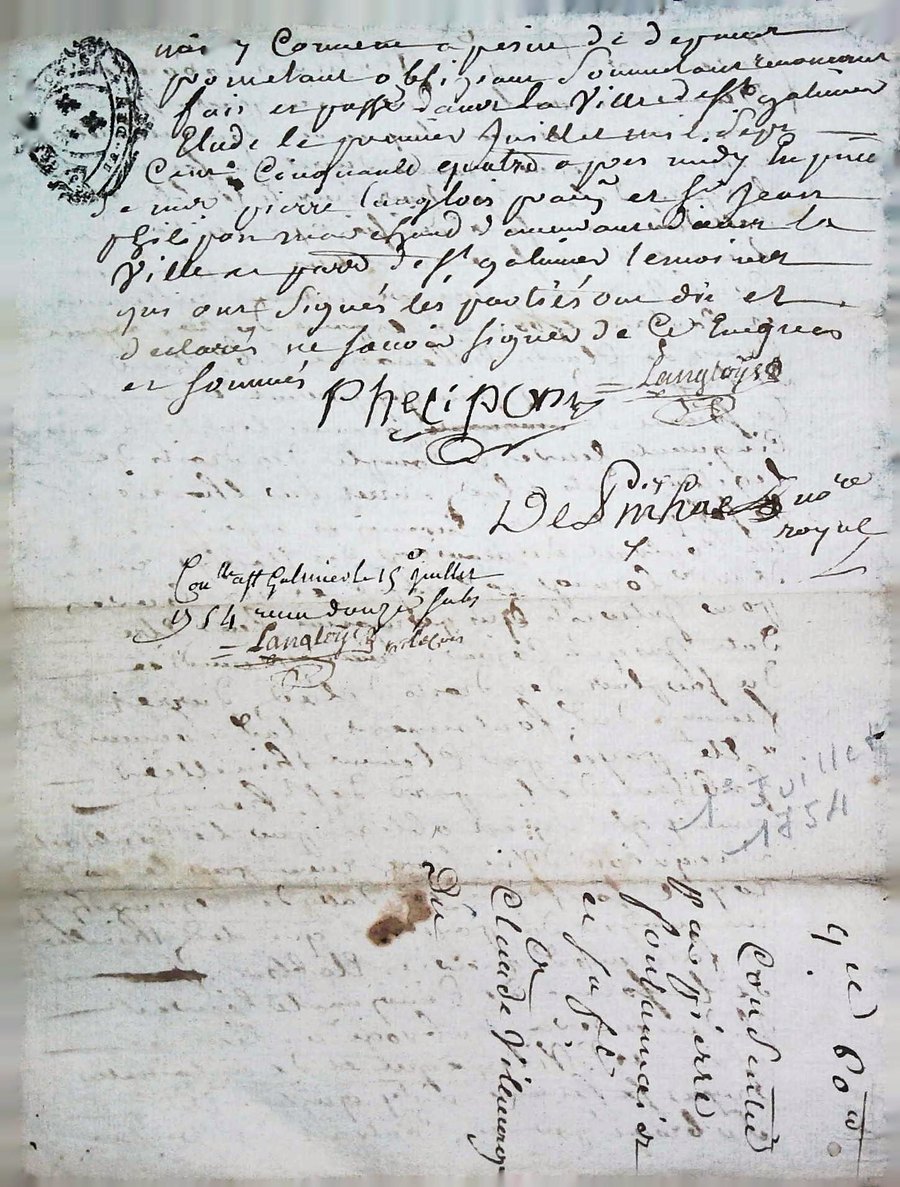 a peine de depens
promettant obligeant soumettant renonceant
fait et passé dans la Ville de St galmier
Etude le premier Juillet mil sept
Cent Cinquante quatre apres midy En pnce
de mre pierre langlois pratn et Sr Jean
philipon marchand demeurants dans la
Ville et parr de St galmier temoins
qui ont signés les parties ont dit et
declarés ne savoir signer de Ce Enquis
et sommés
Phelipon = Langloys
De notre
royal
Conlle a St Galmier le 15e Juillet
1754 recu douze sols
= Langloys
1er Juillet
1754
Consentie
par pierre
a sa fe
Et
Claude Villemagne
Du